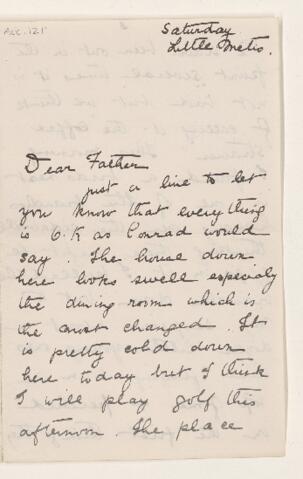 Acc. 121
Saturday
Little Metis.
Dear Father
just a line to let
you know that everything
is O.K as Conrad would
say. The house down
here looks swell especialy
the dining room which is
the most changed. It
is pretty cold down
here today but I think
I will play golf this
afternoon. The place